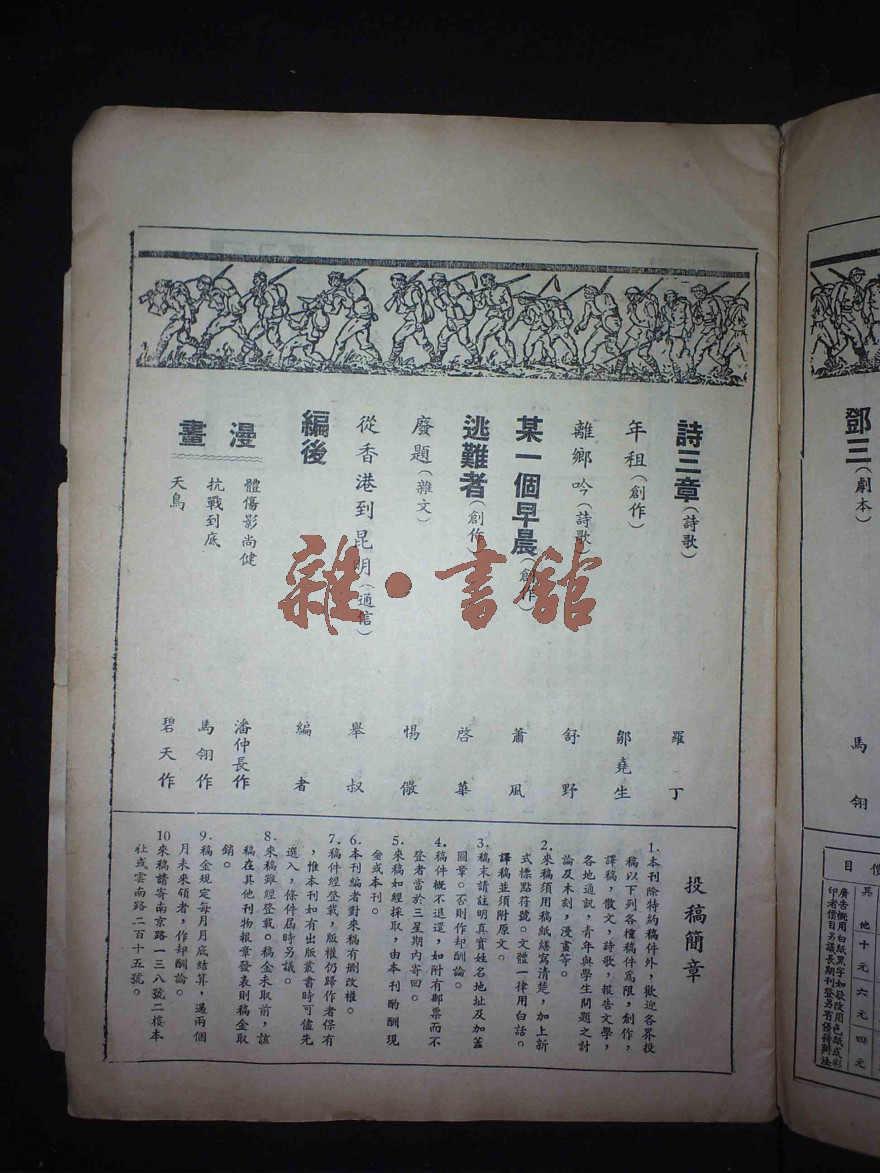 鄧三(劇本) 馬翎
目 價
其他 十元 六元 四元
詩三章(詩歌) 羅丁
年租(創作) 鄒堯生
離鄉吟(詩歌) 舒野
某一個早晨(創作) 蕭風
逃難者(創作) 啓華
廢題(雜文) 惕儆
從香港到昆明(通信) 舉叔
編後 編者
漫畫
體傷影尚健 潘仲長作
抗戰到底 馬翎作
天鳥 碧天作
投稿簡章
1.本刊除特約稿件外,歡迎各界投
稿以下列各種稿件爲限,創作,
譯稿,散文,詩歌,報告文學,
各地通訊,青年與學生問題之討
論及木刻,漫畫等。
2.來稿須用稿紙繕寫清楚,加上新
式標點符號。文體一律用白話。
譯稿並須附原文。
3.稿末請註明真實姓名地址及加蓋
圖章。否則作却酬論。
4.稿件概不退還,如附有郵票而不
登者當於三星期內寄回。
5.來稿如經採取,由本刊酌酬現
金或本刊。
6.本刊編者對來稿有删改權。
7.稿件經登載,版權仍歸作者保有
,惟本刊如有出版叢書時可儘先
選入,條件屆時另議。
8.來稿雖經登載。稿金未取前,該
稿在其他刊物報章發表則稿金取
銷。
9.稿金規定每月月底結算,過兩個
月未來領者,作却酬論。
10來稿請寄南京路一三八號二樓本
社或雲南路二百十五號。
雜·書館